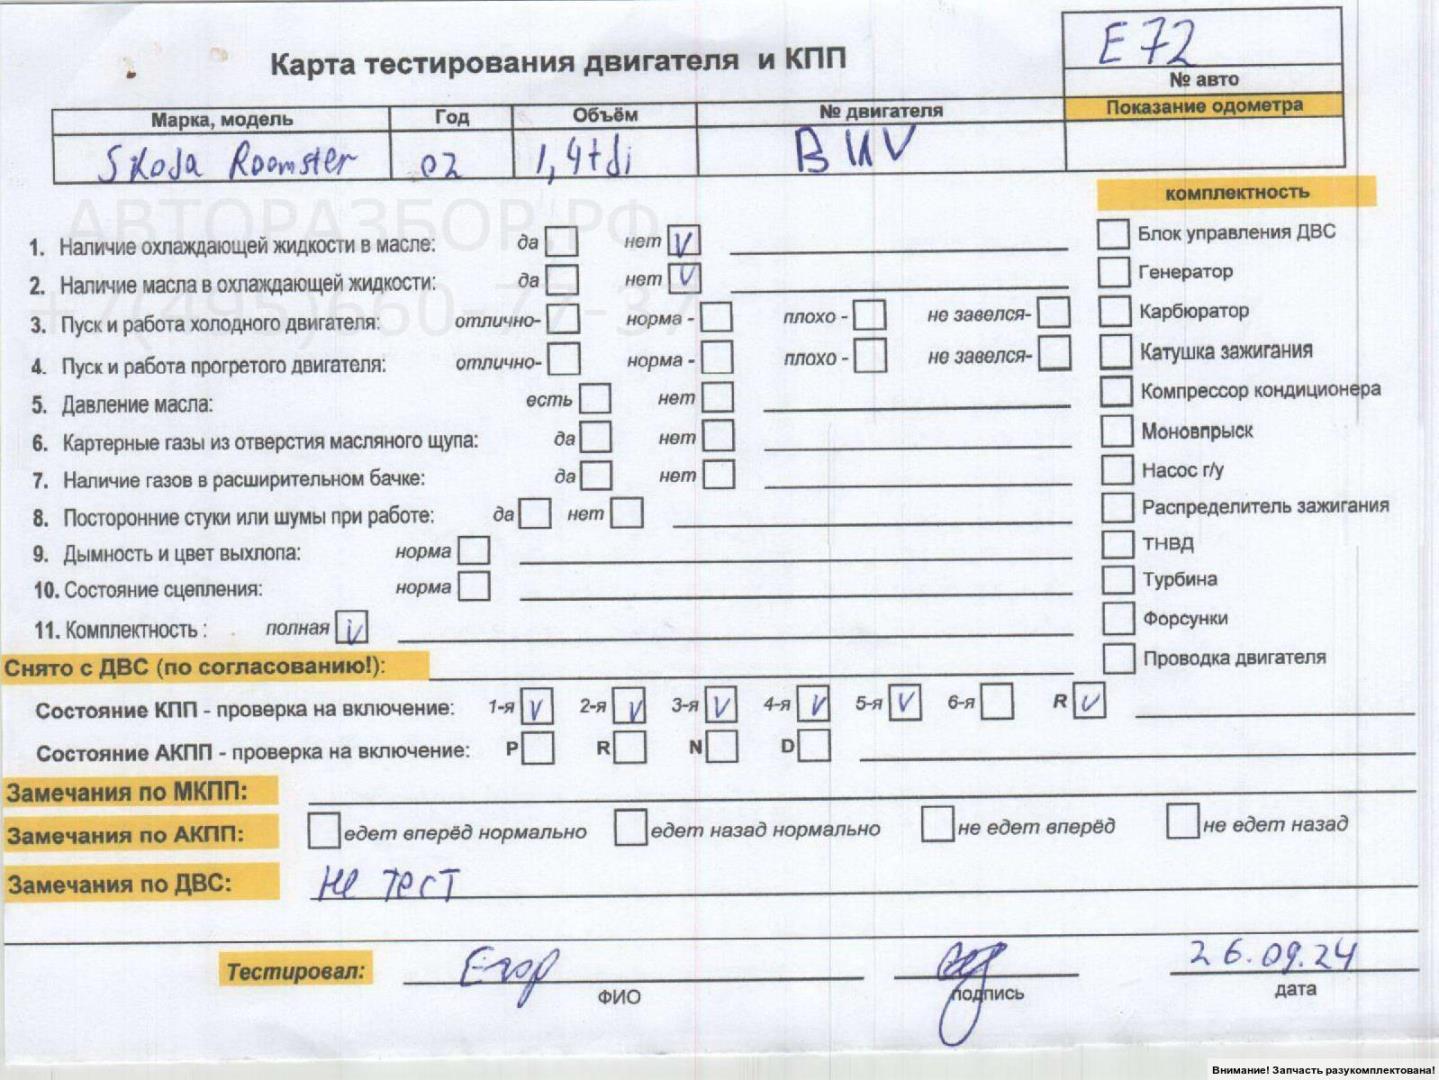 E72
Карта тестирования двигателя и КПП
№ авто
Марка, модель Год Объём № двигателя Показание одометра
Skoda Roomster 07 1,4tdi BNV
комплектность
АВТОРАЗБОР.РФ
+7(495)660-77-37
1. Наличие охлаждающей жидкости в масле: да нет V
2. Наличие масла в охлаждающей жидкости: да нет V
3. Пуск и работа холодного двигателя: отлично- норма - плохо - не завелся-
4. Пуск и работа прогретого двигателя: отлично- норма - плохо - не завелся-
5. Давление масла: есть нет
6. Картерные газы из отверстия масляного щупа: да нет
7. Наличие газов в расширительном бачке: да нет
8. Посторонние стуки или шумы при работе: да нет
9. Дымность и цвет выхлопа: норма
10. Состояние сцепления: норма
11. Комплектность : полная V
Блок управления ДВС
Генератор
Карбюратор
Катушка зажигания
Компрессор кондиционера
Моновпрыск
Насос г/у
Распределитель зажигания
ТНВД
Турбина
Форсунки
Проводка двигателя
Снято с ДВС (по согласованию!):
Состояние КПП - проверка на включение: 1-я V 2-я V 3-я V 4-я V 5-я V 6-я R V
Состояние АКПП - проверка на включение: P R N D
Замечания по МКПП:
Замечания по АКПП: едет вперёд нормально едет назад нормально не едет вперёд не едет назад
Замечания по ДВС: не тест
Тестировал: 26.09.24
ФИО подпись дата
Внимание! Запчасть разукомплектована!